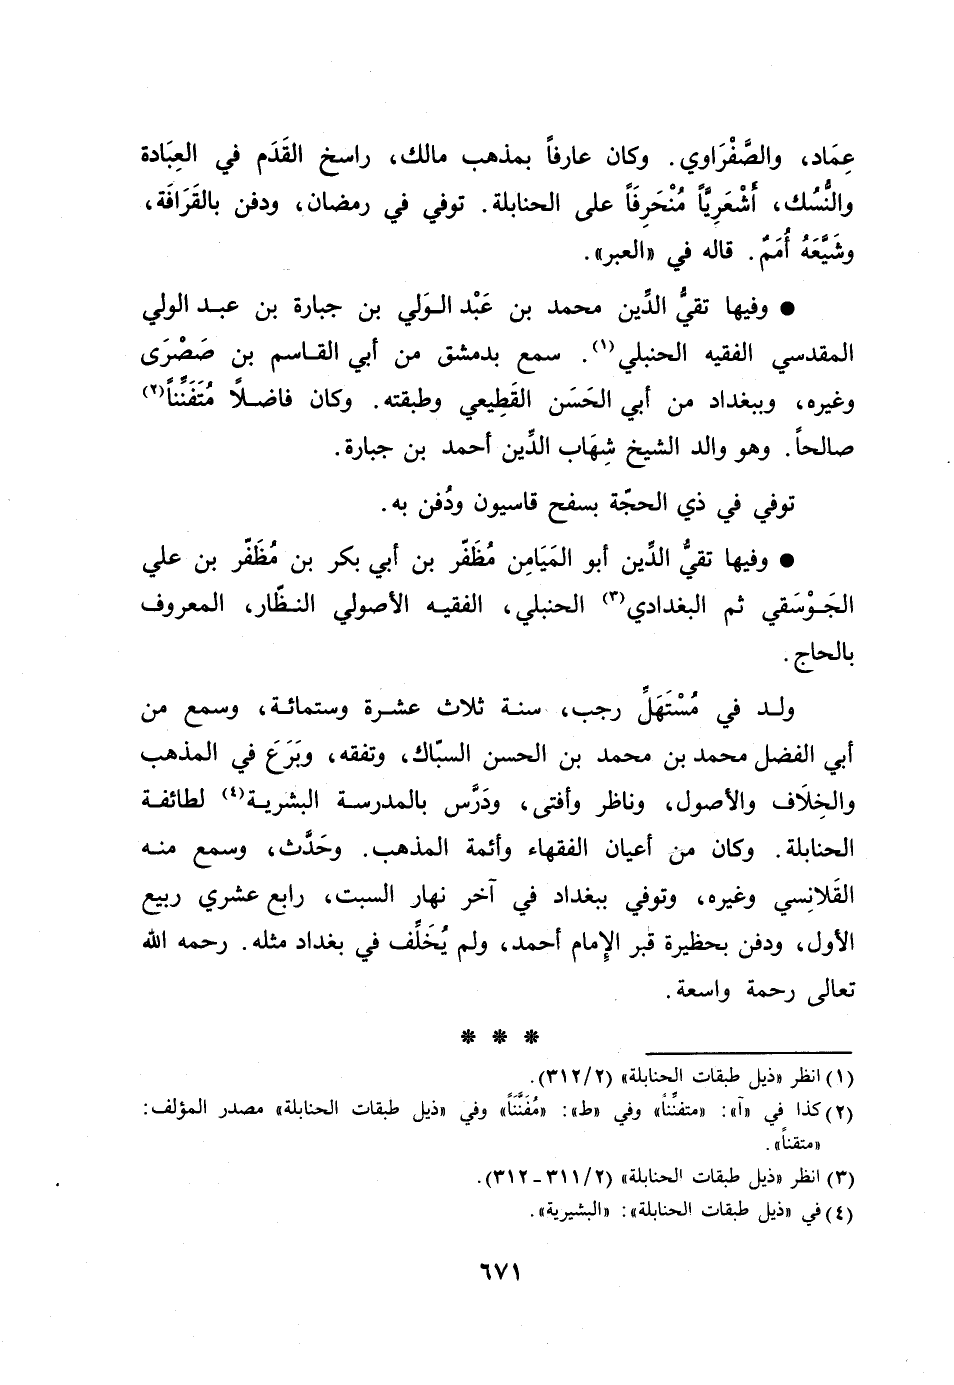 عِمَاد، والصَّفْرَاوي. وكان عارفاً بمذهب مالك، راسخ القَدَم في العِبَادة
والنُّسُك، أَشْعَرِيَّاً مُنْحَرِفَاً على الحنابلة. توفي في رمضان، ودفن بالقَرَافَة،
وشَيَّعَهُ أُمَمٌ. قاله في «العبر».
● وفيها تقيُّ الدِّين محمد بن عَبْد الوَلي بن جبارة بن عبد الولي
المقدسي الفقيه الحنبلي(١). سمع بدمشق من أبي القاسم بن صَصْرَى
وغيره، وببغداد من أبي الحَسَن القَطِيعي وطبقته. وكان فاضلاً مُتَفَنِّناً(٢)
صالحاً. وهو والد الشيخ شِهَاب الدِّين أحمد بن جبارة.
توفي في ذي الحجّة بسفح قاسيون ودُفن به.
● وفيها تقيُّ الدِّين أبو المَيَامِن مُظَفّر بن أبي بكر بن مُظَفّر بن علي
الجَوْسَقي ثم البغدادي(٣) الحنبلي، الفقيه الأصولي النظّار، المعروف
بالحاج.
ولد في مُسْتَهَلِّ رجب، سنة ثلاث عشرة وستمائة، وسمع من
أبي الفضل محمد بن محمد بن الحسن السبّاك، وتفقه، وبَرَعَ في المذهب
والخِلَاف والأصول، وناظر وأفتى، ودَرَّس بالمدرسة البشرية(٤) لطائفة
الحنابلة. وكان من أعيان الفقهاء وأئمة المذهب. وحَدَّث، وسمع منه
القَلانِسي وغيره، وتوفي ببغداد في آخر نهار السبت، رابع عشري ربيع
الأول، ودفن بحظيرة قبر الإِمام أحمد، ولم يُخَلِّف في بغداد مثله. رحمه الله
تعالى رحمة واسعة.
* * *
(١) انظر «ذيل طبقات الحنابلة» (٢/٣١٢).
(٢) كذا في «آ»: «متفنِّناً» وفي «ط»: «مُفَنَّنَاً» وفي «ذيل طبقات الحنابلة» مصدر المؤلف:
«متقناً».
(٣) انظر «ذيل طبقات الحنابلة» (٢/٣١١ - ٣١٢).
(٤) في «ذيل طبقات الحنابلة»: «البشيرية».
٦٧١